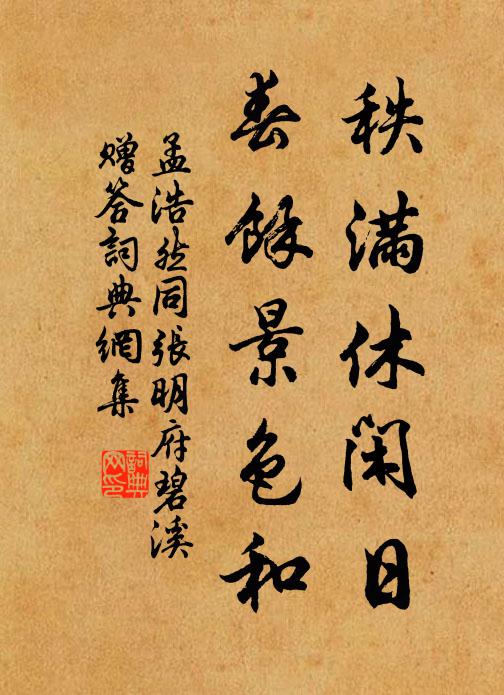 秩滿休閑日
春餘景色和
孟浩然同張明府碧溪
贈答詞典網集
詞典
网印